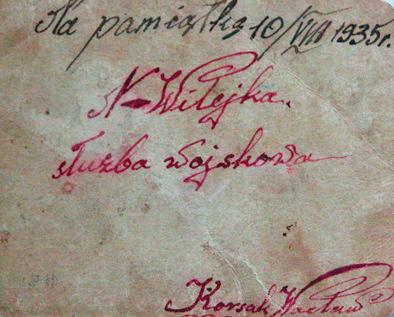 Na pamiątkę 10/VIII 1935r.
N-Wilejka.
służba wojskowa
Korsak Wacław